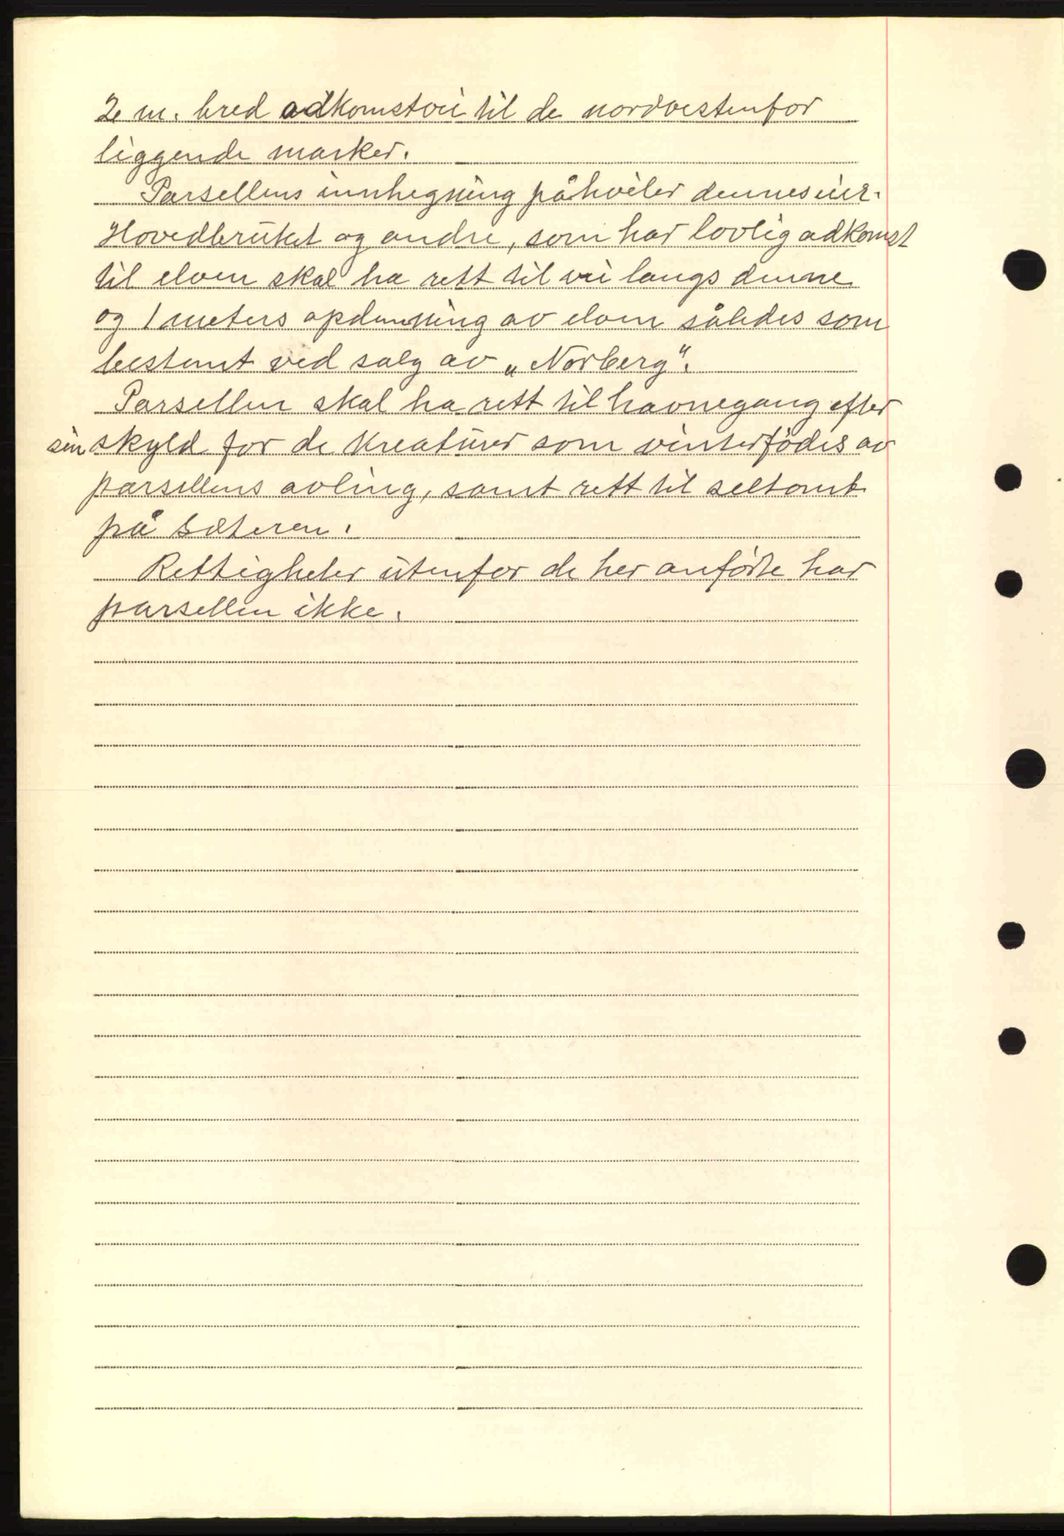 2 m. bred adkomstvei til de nordvestenfor
liggende marker.
Parsellens innhegning påhviler dennes eier.
Hovedbruket og andre, som har lovlig adkomst
til elven skal ha rett til vei langs denne
og 1 meters opdemning av elven således som
bestemt ved salg av „Norberg“.
Parsellen skal ha rett til havnegang efter
sin skyld for de kreaturer som vinterfödes av
parsellens avling, samt rett til seltomt
på sæteren.
Rettigheter utenfor de her anførte har
parsellen ikke.